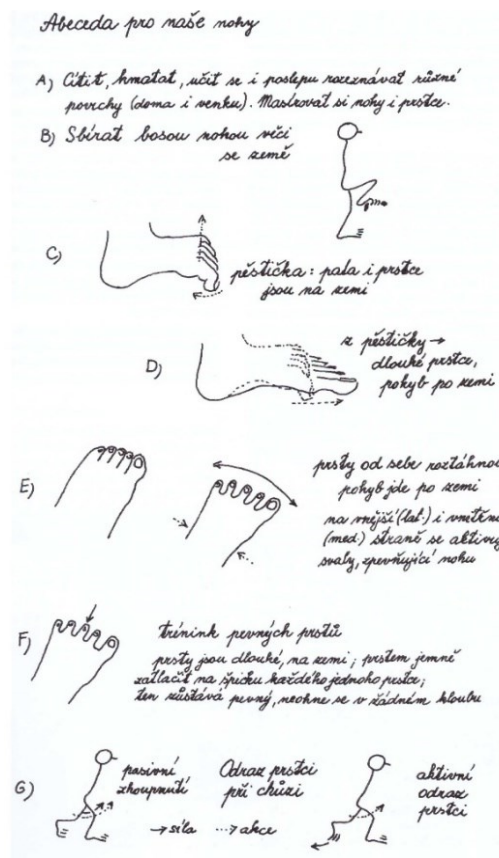 Abeceda pro naše nohy
A) Cítit, hmatat, učit se i poslepu rozeznávat různé
povrchy (doma i venku). Masírovat si nohy i prstce.
B) Sbírat bosou nohou věci
se země
C)
pěstička: pata i prstce
jsou na zemi
D)
z pěstičky →
dlouhé prstce,
pohyb po zemi
E)
prsty od sebe roztáhnou
pohyb jde po zemi
na vnější (lat.) i vnitřní
(med.) straně se aktivují
svaly, zpevňující nohu
F)
trénink pevných prstů
prsty jsou dlouhé, na zemi; prstem jemně
zatlačit na špičku každého jednoho prstce;
ten zůstává pevný, neohne se v žádném kloubu
G)
pasivní
zhoupnutí
Odraz prstci
při chůzi
→ síla ⇢ akce
aktivní
odraz
prstci